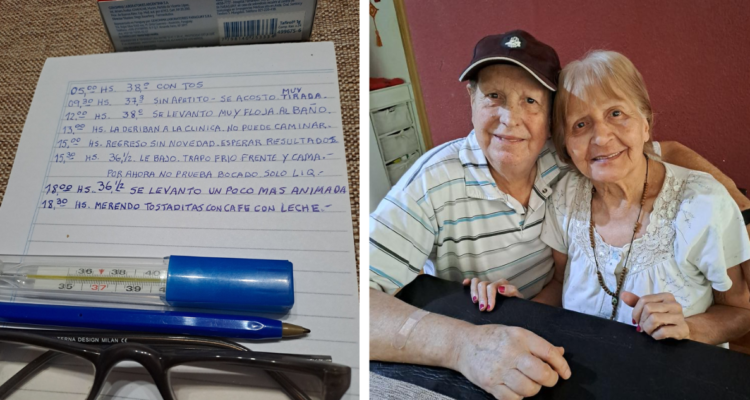 05,00 HS. 38° CON TOS
09,30 HS. 37° SIN APETITO - SE ACOSTO MUY TIRADA.
12,00 HS. 38° SE LEVANTO MUY FLOJA AL BAÑO.
13,00 HS. LA DERIBAN A LA CLINICA. NO PUEDE CAMINAR.
15,00 HS. REGRESO SIN NOVEDAD. ESPERAR RESULTADO
15,30 HS. 36,1/2. LE BAJO. TRAPO FRIO FRENTE Y CAMA.-
POR AHORA NO PRUEBA BOCADO SOLO LIQ.-
18,00 HS. 36,1/2 SE LEVANTO UN POCO MAS ANIMADA
18,30 HS. MERENDO TOSTADITAS CON CAFE CON LECHE.-
36 38 40
35 37 39
TERNA DESIGN MILAN CE